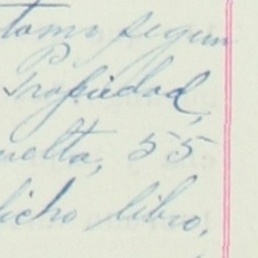 tomo segun
Propiedad,
uelta, 55
dicho libro,